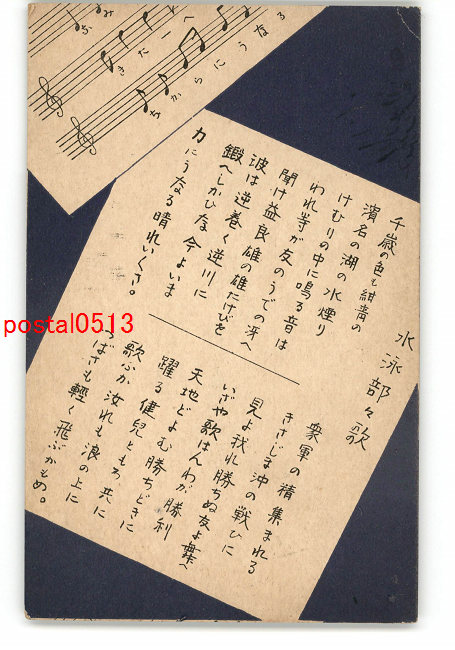 きたへ
ちからにうなる
水泳部々歌
千歳の色も紺青の
濱名の湖の水煙り
けむりの中に鳴る音は
われ等が友のうでの冴へ
聞け益良雄の雄たけびを
波は逆巻く逆川に
鍛へしかひな今よいま
力にうなる晴れいくさ。
衆軍の精集まれる
きさじま沖の戦ひに
見よ我れ勝ちぬ友よ舞へ
いざや歌はんわが勝利
天地どよむ勝ちどきに
躍る健児ともろ共に
歌ふか汝れも浪の上に
つばさも軽く飛ぶかもめ。
postal0513